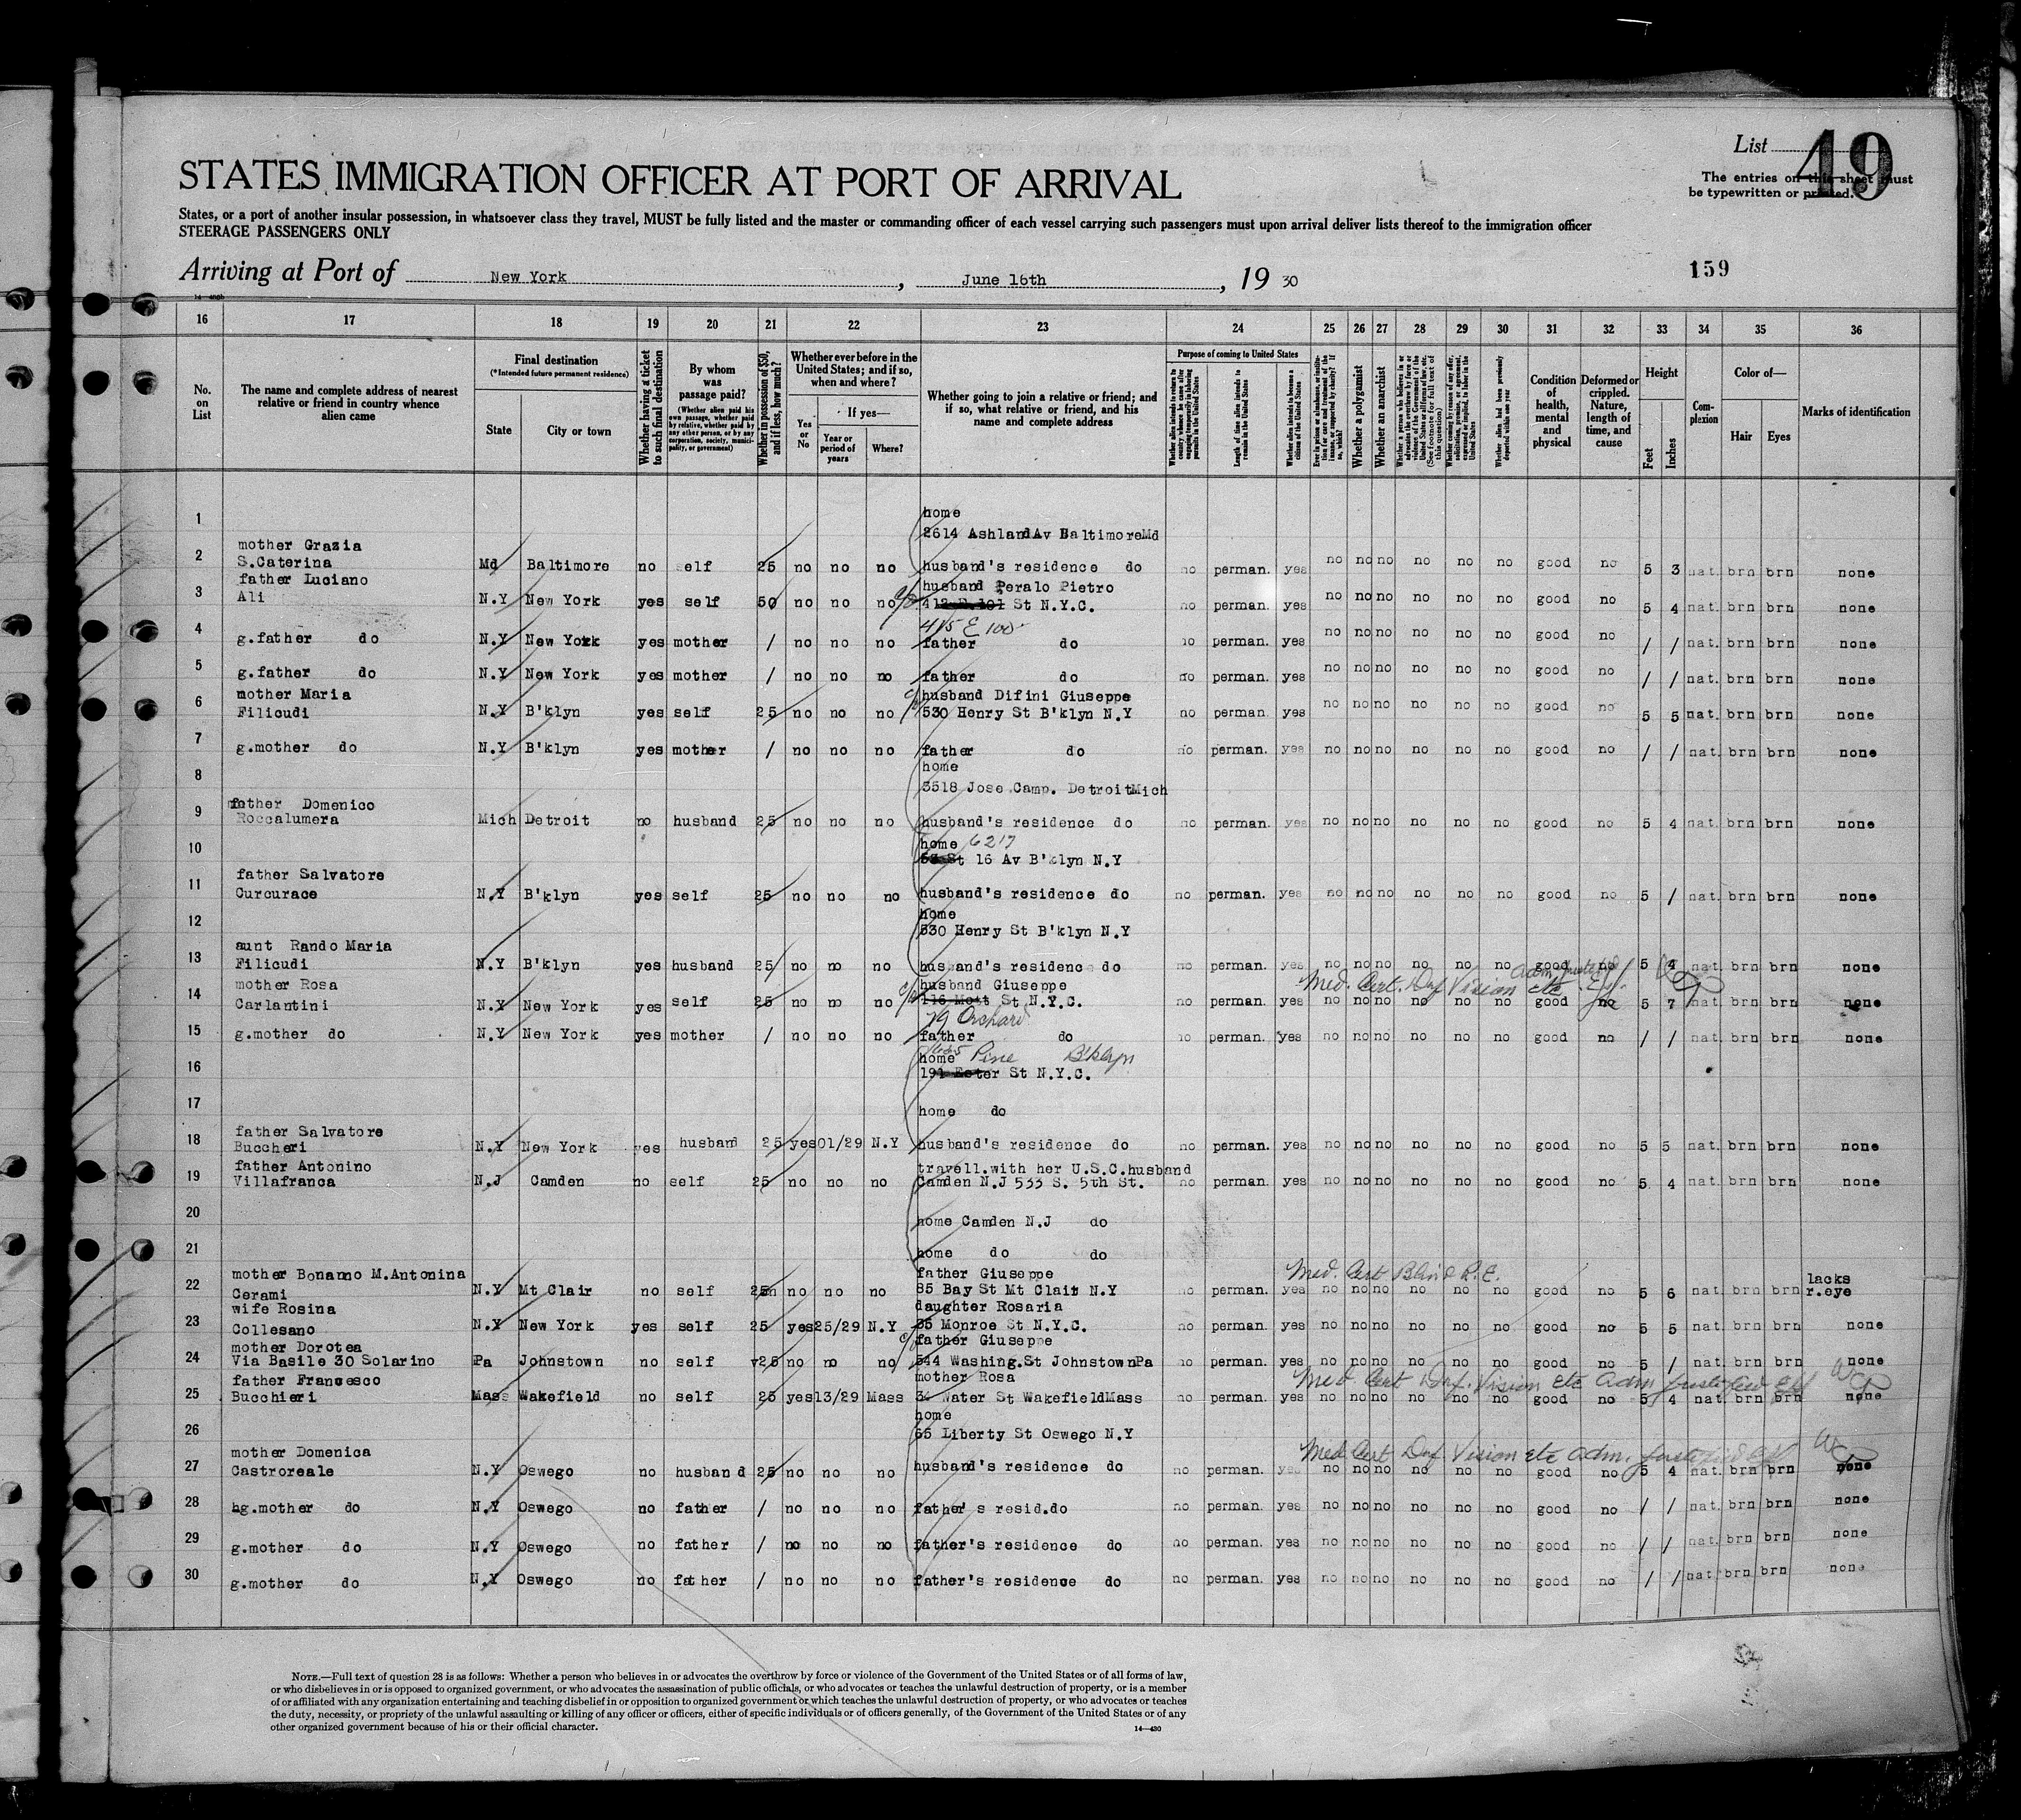 List 49
The entries on this sheet must
be typewritten or printed.
STATES IMMIGRATION OFFICER AT PORT OF ARRIVAL
States, or a port of another insular possession, in whatsoever class they travel, MUST be fully listed and the master or commanding officer of each vessel carrying such passengers must upon arrival deliver lists thereof to the immigration officer
STEERAGE PASSENGERS ONLY
Arriving at Port of New York, June 16th, 19 30
159
16 17 18 19 20 21 22 23 24 25 26 27 28 29 30 31 32 33 34 35 36
No. on List
The name and complete address of nearest relative or friend in country whence alien came
Final destination
(*Intended future permanent residence)
State
City or town
Whether having a ticket to such final destination
By whom was passage paid?
(Whether alien paid his own passage, whether paid by relative, whether paid by any other person, or by any corporation, society, municipality, or government)
Whether in possession of $50, and if less, how much?
Whether ever before in the United States; and if so, when and where?
Yes or No
If yes—
Year or period of years
Where?
Whether going to join a relative or friend; and if so, what relative or friend, and his name and complete address
Purpose of coming to United States
Length of time alien intends to remain in the United States
Whether alien intends to become a citizen of the United States
Whether a polygamist
Whether an anarchist
Whether alien had been previously deported within one year
Condition of health, mental and physical
Deformed or crippled. Nature, length of time, and cause
Height
Feet
Inches
Complexion
Color of—
Hair
Eyes
Marks of identification
1 home
2614 Ashland Av Baltimore Md
mother Grazia
2 S.Caterina Md Baltimore no self 25 no no no husband's residence do no perman. yes no no no no no no good no 5 3 nat. brn brn none
father Luciano husband Peralo Pietro
3 Ali N.Y New York yes self 50 no no no c/o St N.Y.C. no perman. yes no no no no no no good no 5 4 nat. brn brn none
415 E 100
4 g.father do N.Y New York yes mother / no no no father do no perman. yes no no no no no no good no / / nat. brn brn none
5 g.father do N.Y New York yes mother / no no no father do no perman. yes no no no no no no good no / / nat. brn brn none
mother Maria c/o husband Difini Giuseppe
6 Filicudi N.Y B'klyn yes self 25 no no no 530 Henry St B'klyn N.Y no perman. yes no no no no no no good no 5 5 nat. brn brn none
7 g.mother do N.Y B'klyn yes mother / no no no father do no perman. yes no no no no no no good no / / nat. brn brn none
8 home
3518 Jose Camp. Detroit Mich
father Domenico
9 Roccalumera Mich Detroit no husband 25 no no no husband's residence do no perman. yes no no no no no no good no 5 4 nat. brn brn none
10 home 6217
53 St 16 Av B'klyn N.Y
father Salvatore
11 Curcurace N.Y B'klyn yes self 25 no no no husband's residence do no perman. yes no no no no no no good no 5 / nat. brn brn none
12 home
530 Henry St B'klyn N.Y
aunt Rando Maria
13 Filicudi N.Y B'klyn yes husband 25 no no no husband's residence do no perman. yes no no no no no no good no 5 4 nat. brn brn none
mother Rosa c/o husband Giuseppe Med. Cert. Def Vision etc
14 Carlantini N.Y New York yes self 25 no no no 116 Mott St N.Y.C. no perman. yes no no no no no no good no 5 7 nat. brn brn none
79 Orchard
15 g.mother do N.Y New York yes mother / no no no father do no perman. yes no no no no no no good no / / nat. brn brn none
16 home Pine B'klyn
St N.Y.C.
17 home do
father Salvatore
18 Buccheri N.Y New York yes husband 25 yes 01/29 N.Y husband's residence do no perman. yes no no no no no no good no 5 5 nat. brn brn none
father Antonino travell.with her U.S.C.husband
19 Villafranca N.J Camden no self 25 no no no Camden N.J 533 S. 5th St. no perman. yes no no no no no no good no 5 4 nat. brn brn none
20 home Camden N.J do
21 home do do
mother Bonanno M.Antonina father Giuseppe Med. Cert Blind R.E. lacks
22 Cerami N.Y Mt Clair no self 25 no no no 85 Bay St Mt Clair N.Y no perman. yes no no no no no no good no 5 6 nat. brn brn r.eye
wife Rosina daughter Rosaria
23 Collesano N.Y New York yes self 25 yes 25/29 N.Y 35 Monroe St N.Y.C. no perman. yes no no no no no no good no 5 5 nat. brn brn none
mother Dorotea c/o father Giuseppe
24 Via Basile 30 Solarino Pa Johnstown no self 25 no no no 544 Washing.St Johnstown Pa no perman. yes no no no no no no good no 5 / nat. brn brn none
father Francesco mother Rosa Med. Cert Def. Vision etc Adm
25 Bucchieri Mass Wakefield no self 25 yes 13/29 Mass 34 Water St Wakefield Mass no perman. yes no no no no no no good no 5 4 nat. brn brn none
26 home
65 Liberty St Oswego N.Y
mother Domenica Med Cert Def Vision etc Adm.
27 Castroreale N.Y Oswego no husband 25 no no no husband's residence do no perman. yes no no no no no no good no 5 4 nat. brn brn none
28 g.mother do N.Y Oswego no father / no no no father's resid.do no perman. yes no no no no no no good no / / nat. brn brn none
29 g.mother do N.Y Oswego no father / no no no father's residence do no perman. yes no no no no no no good no / / nat. brn brn none
30 g.mother do N.Y Oswego no father / no no no father's residence do no perman. yes no no no no no no good no / / nat. brn brn none
NOTE.—Full text of question 28 is as follows: Whether a person who believes in or advocates the overthrow by force or violence of the Government of the United States or of all forms of law,
or who disbelieves in or is opposed to organized government, or who advocates the assassination of public officials, or who advocates or teaches the unlawful destruction of property, or is a member
of or affiliated with any organization entertaining and teaching disbelief in or opposition to organized government or which teaches the unlawful destruction of property, or who advocates or teaches
the duty, necessity, or propriety of the unlawful assaulting or killing of any officer or officers, either of specific individuals or of officers generally, of the Government of the United States or of any
other organized government because of his or their official character.
14—430